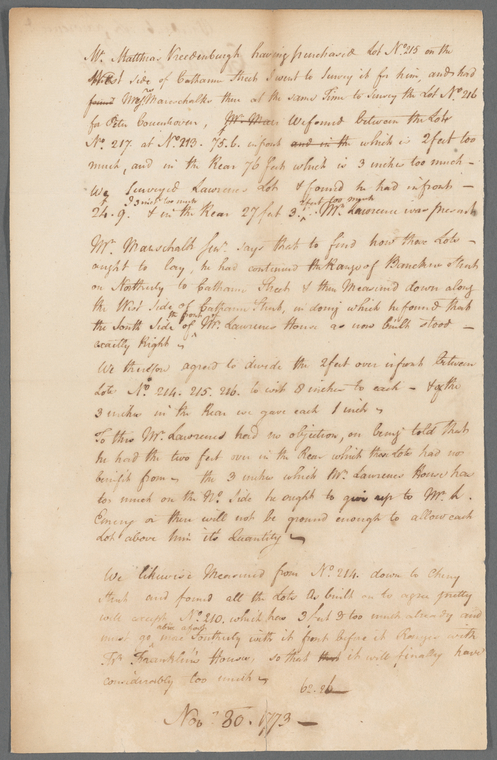 Mr. Matthias Vreedenburgh having purchased Lot No. 215 on the
West side of Catharine Street I went to Survey it for him, and had
found Mr. Marschalk there at the same Time to Survey the Lot No. 216
for Peter Couenhoven, We found between the Lots
No. 217. at No. 213. 75.6. in front and in th which is 2 feet too
much, and in the Rear 76 feet which is 3 inches too much –
We Surveyed Lawrences Lot & found he had in front –
24.9. 3 Inch too much & in the Rear 27 feet 3. 2 feet too much Mr. Lawrence was present
Mr. Marschalk Senr. says that to find how these Lots –
ought to lay, he had continued the Range of Bancker Street
on Northerly to Catharine Street & then Measured down along
the West Side of Catharine Street, in doing which he found that
the South Side of the front of Mr. Lawrence House as now built stood –
exactly Right
We therefore agreed to divide the 2 feet over in front Between
Lots No. 214. 215. 216. to wit 8 inches to each – & of the
3 inches in the Rear we gave each 1 inch
To this Mr. Lawrence had no objection, on being told that
he had the two feet over in the Rear which those Lots had no
benifit from – the 3 inches which Mr. Lawrences House has
too much on the No. Side he ought to give up to Mr. L.
Emery or there will not be ground enough to allow each
Lot above him its Quantity
We likewise Measured from No. 214. down to Cherry
Street and found all the Lots As built on to agree pretty
well except No. 210. which has 3 feet 8 too much already and
must go also about more Southerly with it front before it Ranges with
Franklin's House, so that that it will finally have
considerably too much
62.26
Novr. 30. 1773 –